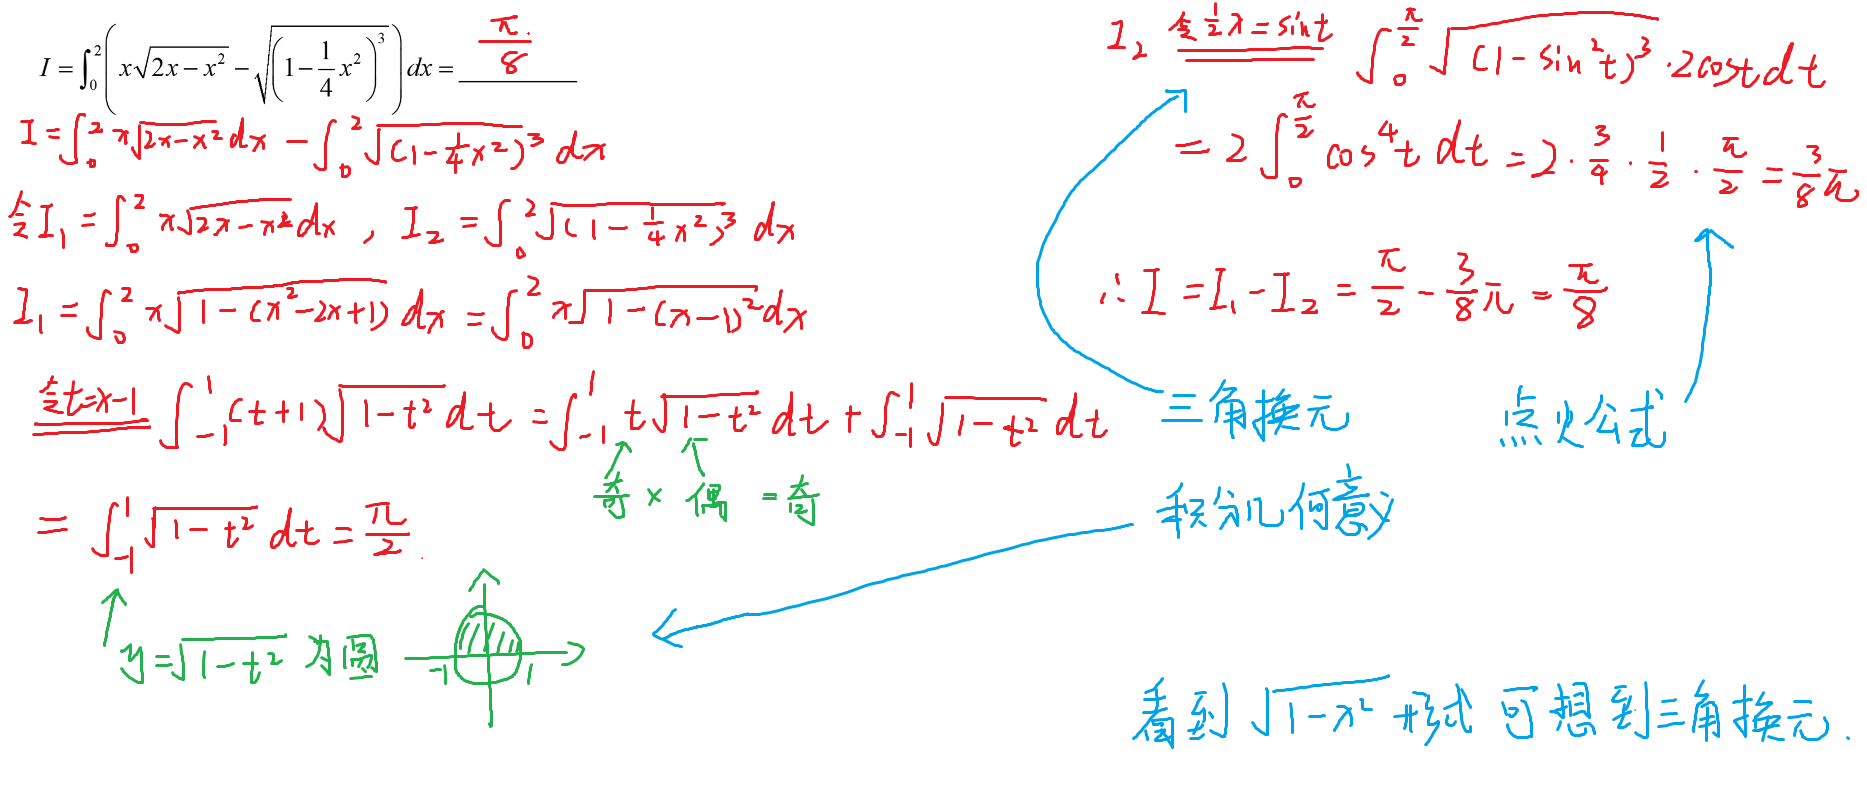 I = ∫₀² ( x√(2x−x²) − √((1−1/4 x²)³) ) dx = π/8
I = ∫₀² x√(2x−x²) dx − ∫₀² √((1−1/4 x²)³) dx
令 I₁ = ∫₀² x√(2x−x²) dx , I₂ = ∫₀² √((1−1/4 x²)³) dx
I₁ = ∫₀² x√(1−(x²−2x+1)) dx = ∫₀² x√(1−(x−1)²) dx
令t=x−1 ∫₋₁¹ (t+1)√(1−t²) dt = ∫₋₁¹ t√(1−t²) dt + ∫₋₁¹ √(1−t²) dt
奇 × 偶 = 奇
= ∫₋₁¹ √(1−t²) dt = π/2 .
y=√(1−t²) 为圆
−1 1
I₂ 令1/2 x = sint ∫₀^(π/2) √((1−sin²t)³) · 2cost dt
= 2 ∫₀^(π/2) cos⁴t dt = 2 · 3/4 · 1/2 · π/2 = 3/8 π
∴ I = I₁ − I₂ = π/2 − 3/8 π = π/8
三角换元 点火公式
积分几何意义
看到 √(1−x²) 形式 可想到三角换元.